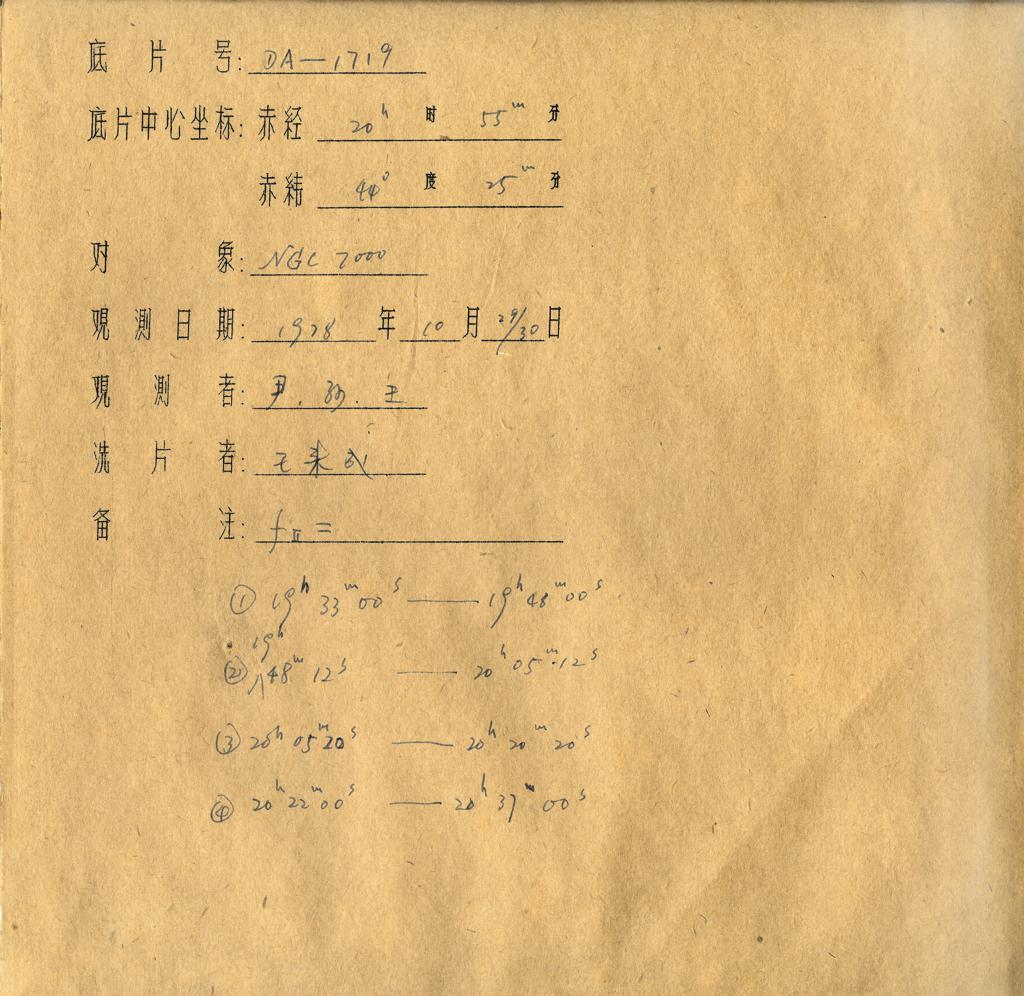 底片号: DA—1719
底片中心坐标: 赤经 20ʰ 时 55ᵐ 分
赤纬 44° 度 25ᵐ 分
对象: NGC 7000
观测日期: 1978 年 10 月 29/30 日
观测者: 尹. 孙. 王
洗片者: 王来
备注: fⅡ =
① 19ʰ 33ᵐ 00ˢ —— 19ʰ 48ᵐ 00ˢ
② 19ʰ 48ᵐ 12ˢ —— 20ʰ 05ᵐ 12ˢ
③ 20ʰ 05ᵐ 20ˢ —— 20ʰ 20ᵐ 20ˢ
④ 20ʰ 22ᵐ 00ˢ —— 20ʰ 37ᵐ 00ˢ